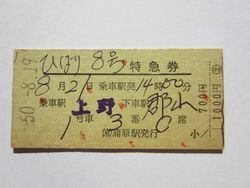 ひばり 8号 特急券
8月21日 乗車駅発 14時00分
乗車駅 上野 下車駅 郡山
1号車 3番 0席
蒲原駅発行 小
50.-8.19
700円
1000円